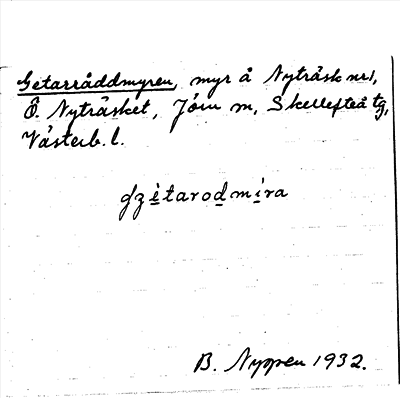 Getarråddmyren, myr å Nyträsk nr 1,
Ö. Nyträsket, Jörn sn, Skellefteå tg,
Västerb. l.
gzètarodmira
B. Nyppen 1932.